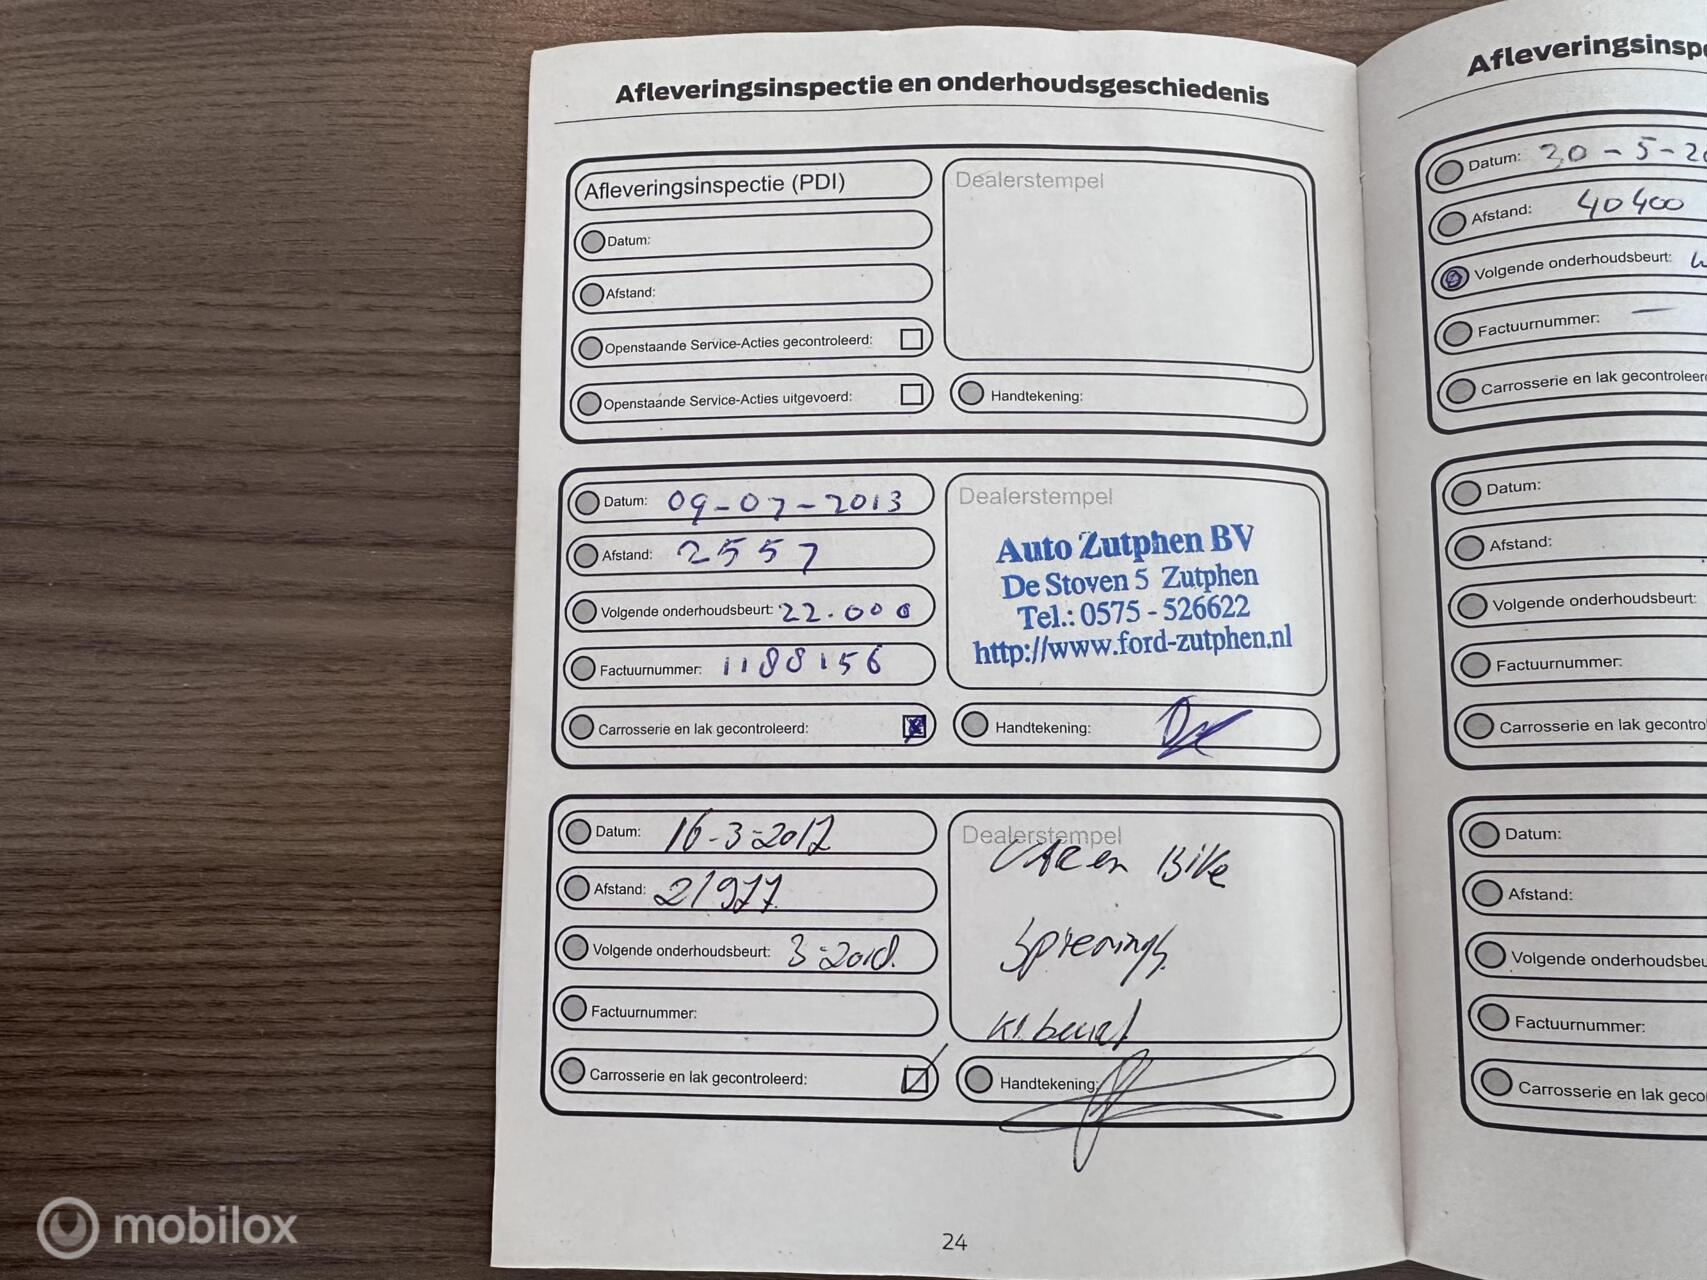 Afleveringsinspectie en onderhoudsgeschiedenis
Afleveringsinspectie (PDI)
Datum:
Afstand:
Openstaande Service-Acties gecontroleerd:
Openstaande Service-Acties uitgevoerd:
Dealerstempel
Handtekening:
Datum: 09-07-2013
Afstand: 2557
Volgende onderhoudsbeurt: 22.000
Factuurnummer: 1188156
Carrosserie en lak gecontroleerd:
Dealerstempel
Auto Zutphen BV
De Stoven 5 Zutphen
Tel.: 0575 - 526622
http://www.ford-zutphen.nl
Handtekening:
Datum: 16-3-2017
Afstand: 21977
Volgende onderhoudsbeurt: 3-2018
Factuurnummer:
Carrosserie en lak gecontroleerd:
Dealerstempel
en Bike
Handtekening:
24
Afleveringsinsp
Datum: 30-5-20
Afstand: 40400
Volgende onderhoudsbeurt:
Factuurnummer: —
Carrosserie en lak gecontroleer
Datum:
Afstand:
Volgende onderhoudsbeurt:
Factuurnummer:
Carrosserie en lak gecontro
Datum:
Afstand:
Volgende onderhoudsbeu
Factuurnummer:
Carrosserie en lak geco
mobilox